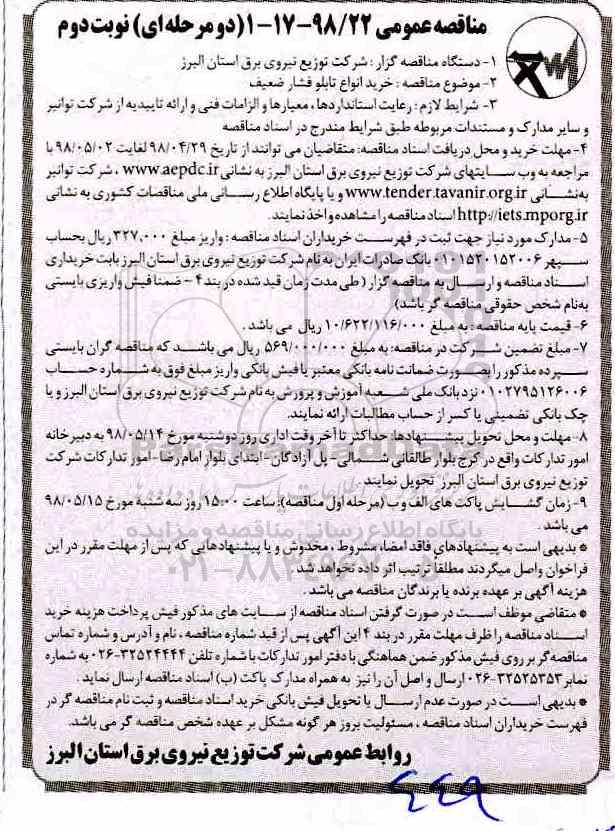 مناقصه عمومی ۹۸/۲۲-۱۷-۱ (دو مرحله ای) نوبت دوم
۱- دستگاه مناقصه گزار : شرکت توزیع نیروی برق استان البرز
۲- موضوع مناقصه : خرید انواع تابلو فشار ضعیف
۳- شرایط لازم : رعایت استانداردها ، معیارها و الزامات فنی و ارائه تاییدیه از شرکت توانیر
و سایر مدارک و مستندات مربوطه طبق شرایط مندرج در اسناد مناقصه
۴- مهلت خرید و محل دریافت اسناد مناقصه: متقاضیان می توانند از تاریخ ۹۸/۰۴/۲۹ لغایت ۹۸/۰۵/۰۲ با
مراجعه به وب سایتهای شرکت توزیع نیروی برق استان البرز به نشانی www.aepdc.ir ، شرکت توانیر
به نشانی www.tender.tavanir.org.ir و یا پایگاه اطلاع رسانی ملی مناقصات کشوری به نشانی
http://iets.mporg.ir اسناد مناقصه را مشاهده و اخذ نمایند.
۵- مدارک مورد نیاز جهت ثبت در فهرست خریداران اسناد مناقصه : واریز مبلغ ۳۲۷,۰۰۰ ریال بحساب
سپهر ۰۱۰۱۵۲۰۱۵۲۰۰۶ بانک صادرات ایران به نام شرکت توزیع نیروی برق استان البرز بابت خریداری
اسناد مناقصه و ارسال به مناقصه گزار ( طی مدت زمان قید شده در بند ۴ - ضمنا فیش واریزی بایستی
به نام شخص حقوقی مناقصه گر باشد)
۶- قیمت پایه مناقصه : به مبلغ ۱۰/۶۲۲/۱۱۶/۰۰۰ ریال می باشد .
۷- مبلغ تضمین شرکت در مناقصه: به مبلغ ۵۶۹/۰۰۰/۰۰۰ ریال می باشد که مناقصه گران بایستی
سپرده مذکور را بصورت ضمانت نامه بانکی معتبر یا فیش بانکی واریز مبلغ فوق به شماره حساب
۰۱۰۲۷۹۵۱۲۶۰۰۶ نزد بانک ملی شعبه آموزش و پرورش به نام شرکت توزیع نیروی برق استان البرز و یا
چک بانکی تضمینی یا کسر از حساب مطالبات ارائه نمایند.
۸- مهلت و محل تحویل پیشنهادها: حداکثر تا آخر وقت اداری روز دوشنبه مورخ ۹۸/۰۵/۱۴ به دبیرخانه
امور تدارکات واقع در کرج بلوار طالقانی شمالی- پل آزادگان- ابتدای بلوار امام رضا- امور تدارکات شرکت
توزیع نیروی برق استان البرز تحویل نمایند .
۹- زمان گشایش پاکت های الف و ب (مرحله اول مناقصه): ساعت ۱۵:۰۰ روز سه شنبه مورخ ۹۸/۰۵/۱۵
می باشد .
پایگاه اطلاع رسانی مناقصه و مزایده
* بدیهی است به پیشنهادهای فاقد امضا، مشروط ، مخدوش و یا پیشنهادهایی که پس از مهلت مقرر در این
فراخوان واصل میگردند مطلقاً ترتیب اثر داده نخواهد شد
هزینه آگهی بر عهده برنده یا برندگان مناقصه می باشد .
* متقاضی موظف است در صورت گرفتن اسناد مناقصه از سایت های مذکور فیش پرداخت هزینه خرید
اسناد مناقصه را ظرف مهلت مقرر در بند ۴ این آگهی پس از قید شماره مناقصه ، نام و آدرس و شماره تماس
مناقصه گر بر روی فیش مذکور ضمن هماهنگی با دفتر امور تدارکات با شماره تلفن ۳۲۵۲۴۴۴۴-۰۲۶ به شماره
نمابر ۳۲۵۲۵۳۵۳-۰۲۶ ارسال و اصل آن را نیز به همراه مدارک پاکت (ب) اسناد مناقصه ارسال نماید .
* بدیهی است در صورت عدم ارسال یا تحویل فیش بانکی خرید اسناد مناقصه و ثبت نام مناقصه گر در
فهرست خریداران اسناد مناقصه ، مسئولیت بروز هر گونه مشکل بر عهده شخص مناقصه گر می باشد.
روابط عمومی شرکت توزیع نیروی برق استان البرز
۴۴۹